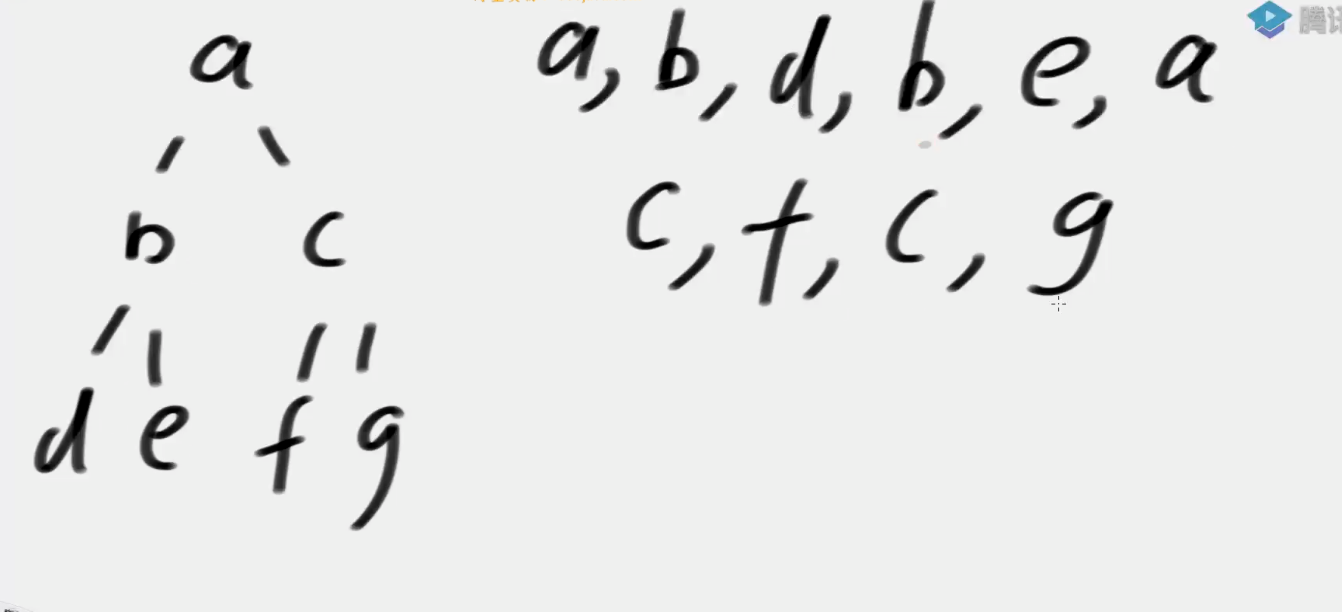 a
b c
d e f g
a, b, d, b, e, a
c, f, c, g
腾讯